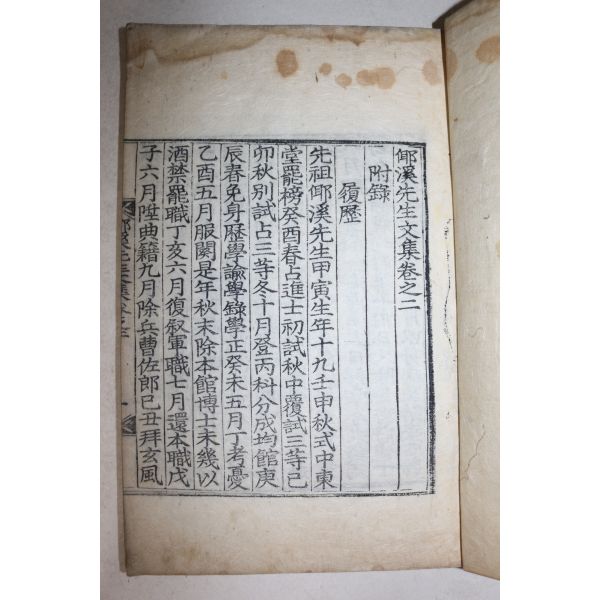 倻溪先生文集卷之二
附錄
履歷
先祖倻溪先生甲寅生年十九壬申秋式中東
堂罷榜癸酉春占進士初試秋中覆試三等己
卯秋別試占三等冬十月登丙科分成均館庚
辰春免身歷學諭學錄學正癸未五月丁考憂
乙酉五月服闋是年秋末除本館博士未幾以
酒禁罷職丁亥六月復叙軍職七月還本職戊
子六月陞典籍九月除兵曹佐郎己丑拜玄風